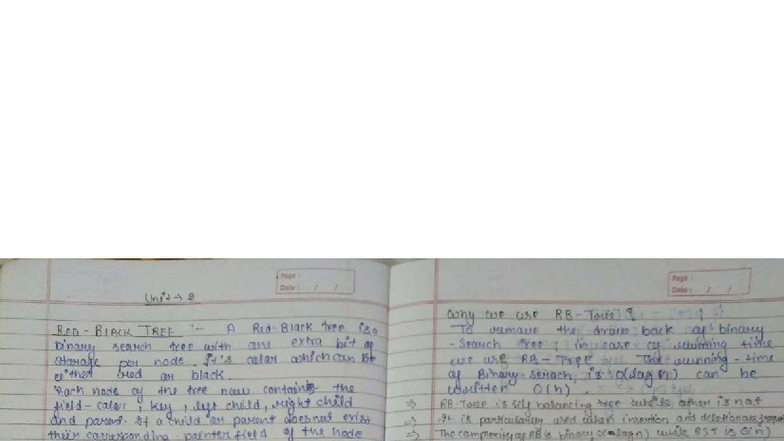 Page :
Date : / /
Unit → 2
RED - BLACK TREE :- A Red-Black tree is a
binary search tree with one extra bit of
storage per node. It's color which can be
either red or black.
Each node of the tree now contains the
field - color, key, left child, right child
and parent. If a child or parent does not exist
their corresponding pointer field of the node
Page :
Date : / /
Why we use RB-Tree ?
To remove the draw back of binary
- Search tree, in case of running time
we use RB-Tree. The running - time
of Binary-Serach, is O(log n) can be
written O(h).
⇒ RB-Tree is self balancing tree while other is not
⇒ It is particulary used when insertion and deletion are
⇒ The complexity of RB is binary O(log n) while BST is O(n)